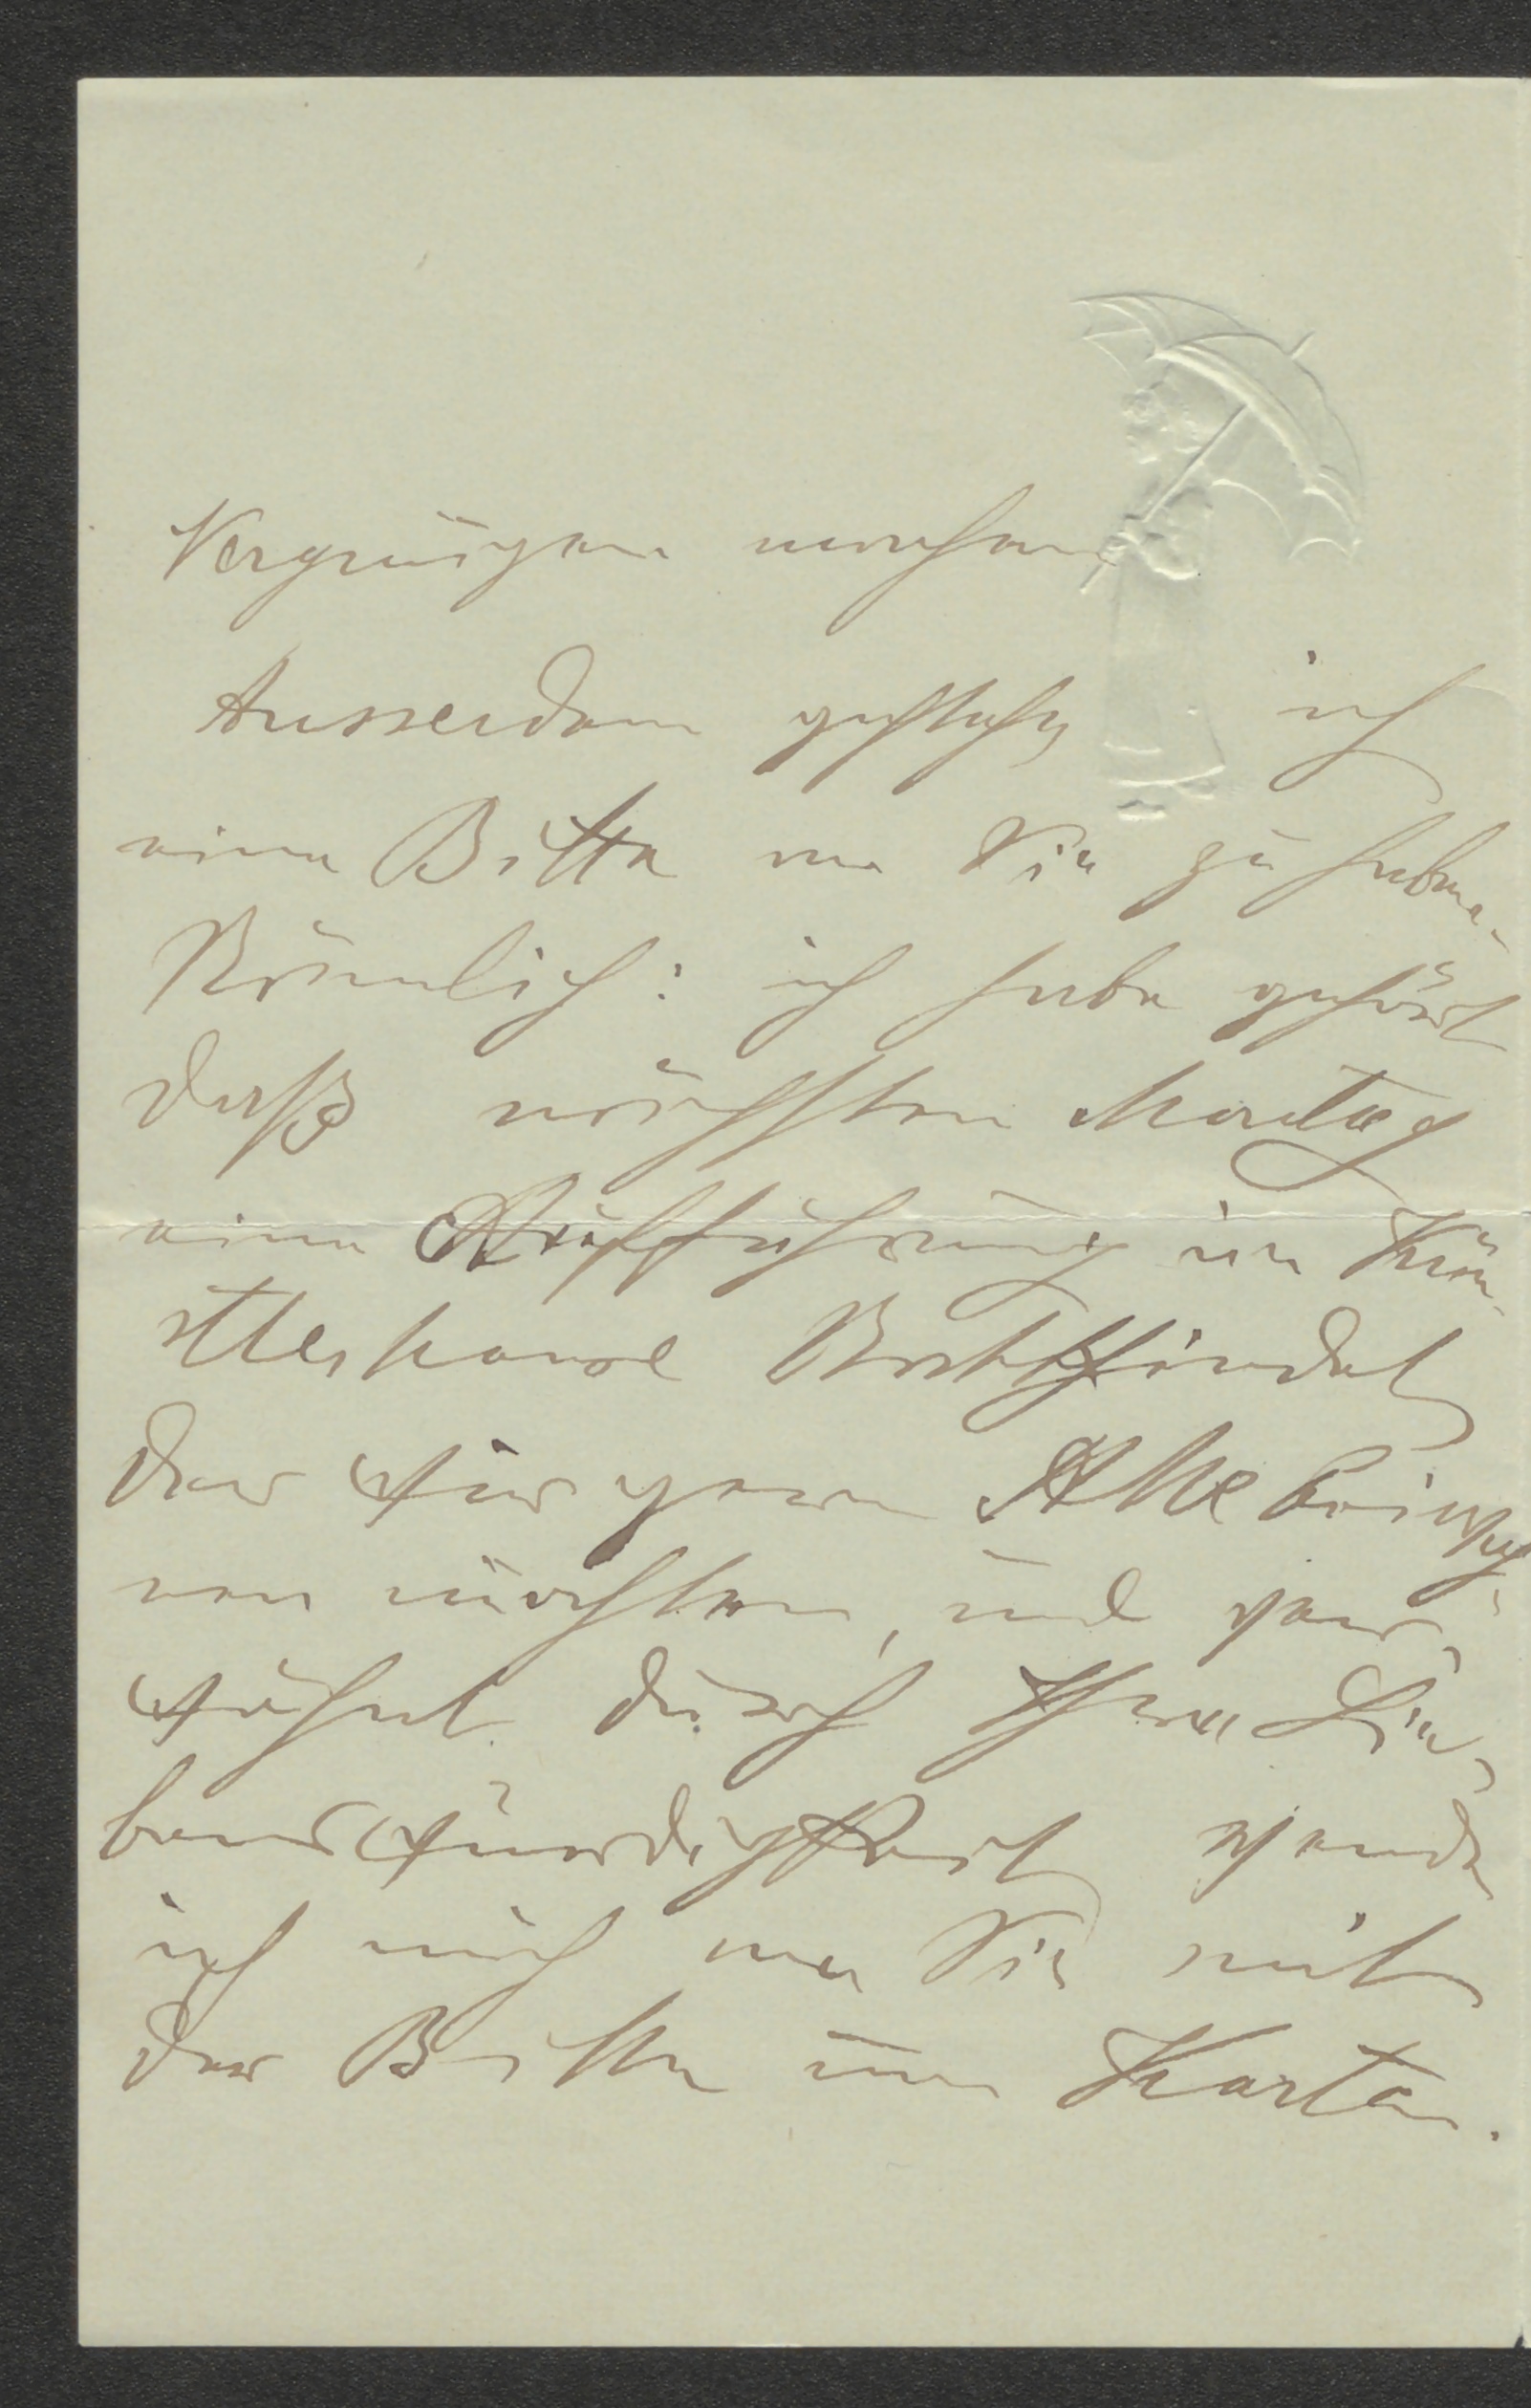 Vergnügen machen
Ausserdem gestehe ich
eine Bitte an Sie zu haben.
Nämlich: ich habe gehört
daß nächsten Montag
eine Aufführung im Kün-
stlerhause Stattfindet
der wir gern Alle beiwoh-
nen möchten, und ver-
wöhnt durch Ihre Lie-
benswürdigkeit wende
ich mich an Sie mit
der Bitte um Karten.